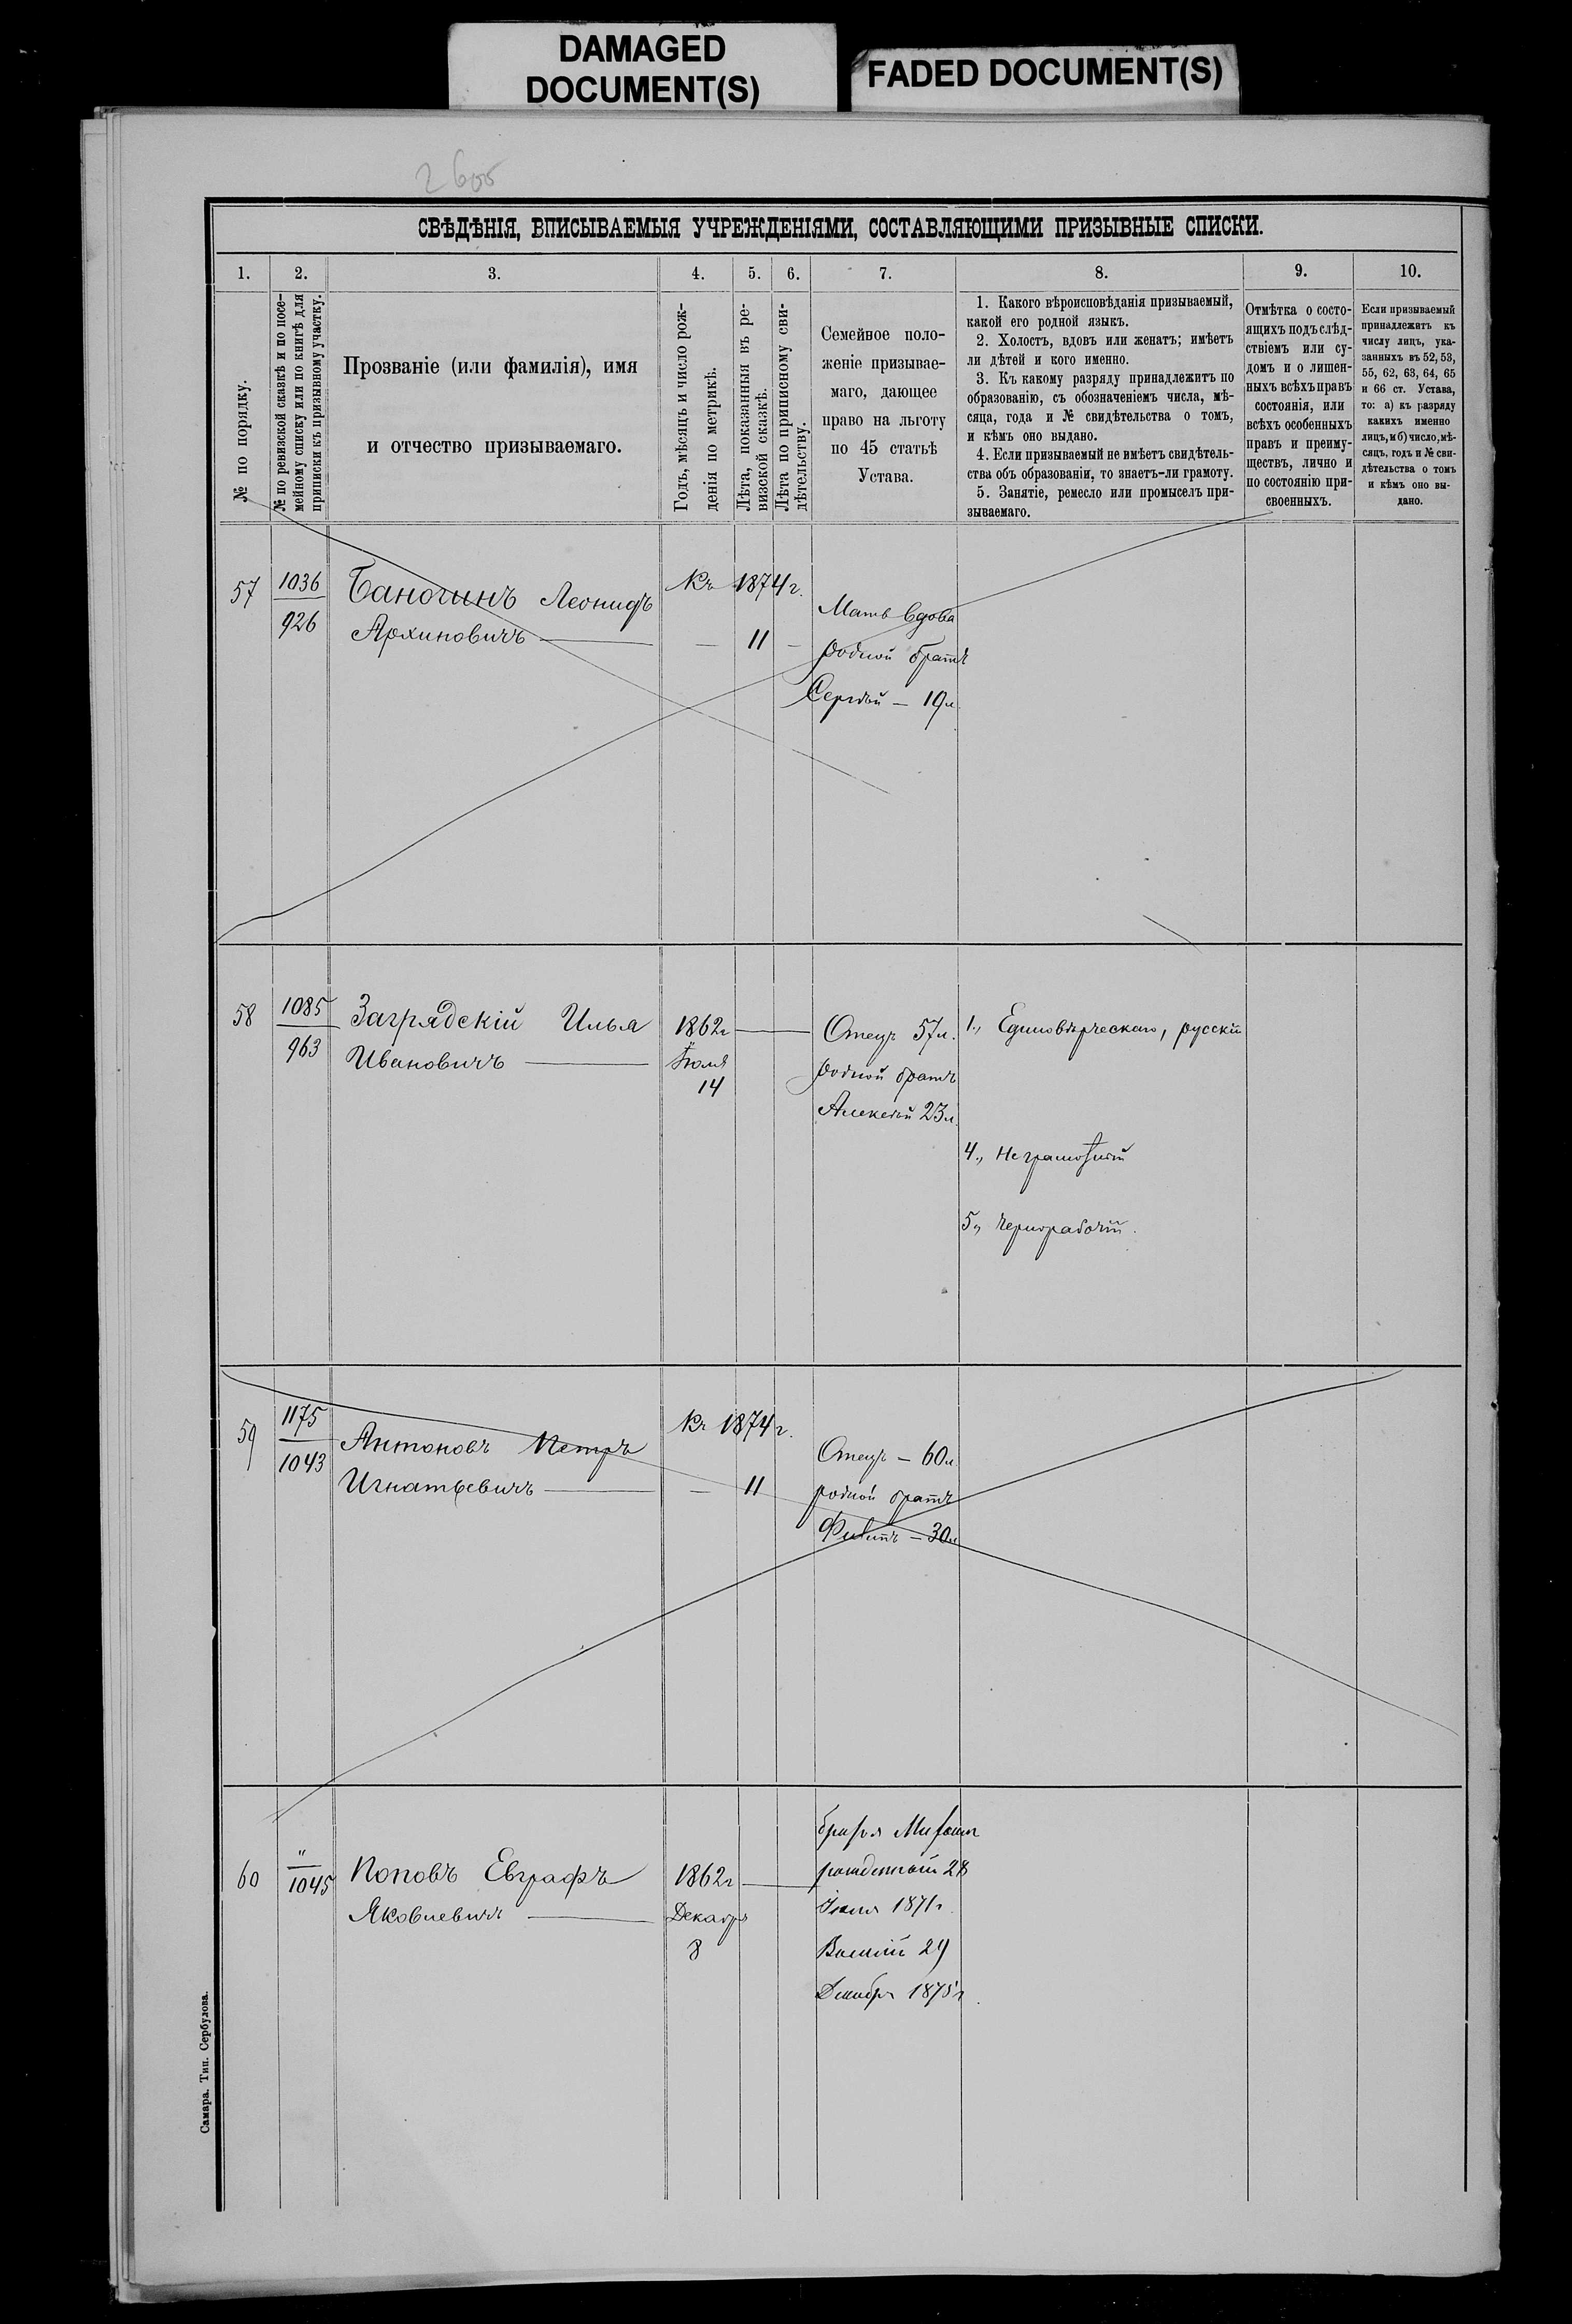 DAMAGED
DOCUMENT(S)
FADED DOCUMENT(S)
СВѢДѢНІЯ, ВПИСЫВАЕМЫЯ УЧРЕЖДЕНІЯМИ, СОСТАВЛЯЮЩИМИ ПРИЗЫВНЫЕ СПИСКИ.
1.
2.
3.
4.
5.
6.
7.
8.
9.
10.
№ по порядку.
№ по ревизской сказкѣ и по посе-
мейному списку или по книгѣ для
приписки къ призывному участку.
Прозваніе (или фамилія), имя
и отчество призываемаго.
Годъ, мѣсяцъ и число рож-
денія по метрикѣ.
Лѣта, показанныя въ ре-
визской сказкѣ.
Лѣта по приписному сви-
дѣтельству.
Семейное поло-
женіе призывае-
маго, дающее
право на льготу
по 45 статьѣ
Устава.
1. Какого вѣроисповѣданія призываемый,
какой его родной языкъ.
2. Холостъ, вдовъ или женатъ; имѣетъ
ли дѣтей и кого именно.
3. Къ какому разряду принадлежитъ по
образованію, съ обозначеніемъ числа, мѣ-
сяца, года и № свидѣтельства о томъ,
и кѣмъ оно выдано.
4. Если призываемый не имѣетъ свидѣтель-
ства объ образованіи, то знаетъ-ли грамоту.
5. Занятіе, ремесло или промыселъ при-
зываемаго.
Отмѣтка о состо-
ящихъ подъ слѣд-
ствіемъ или су-
домъ и о лишен-
ныхъ всѣхъ правъ
состоянія, или
всѣхъ особенныхъ
правъ и преиму-
ществъ, лично и
по состоянію при-
своенныхъ.
Если призываемый
принадлежитъ къ
числу лицъ, ука-
занныхъ въ 52, 53,
55, 62, 63, 64, 65
и 66 ст. Устава,
то: а) къ разряду
какихъ именно
лицъ, и б) число, мѣ-
сяцъ, годъ и № сви-
дѣтельства о томъ
и кѣмъ оно вы-
дано.
57
1036
926
Леонидъ
Архиповичъ
Къ 1874 г.
— 11 —
Мать вдова
родной братъ
Сергѣй — 19 л.
58
1085
963
Заградскій Илья
Ивановичъ
1862 г
Іюля
14
Отецъ 57 л.
родной братъ
Алексѣй 23 л.
1., Единовѣрческаго, русскій
4., Неграмотный
5., Чернорабочій.
59
1175
1043
Антоновъ Петръ
Игнатьевичъ
Къ 1874 г.
— 11
Отецъ — 60 л
родной братъ
Филипъ — 30 л
60
"
1045
Поповъ Евграфъ
Яковлевичъ
1862 г
Декабря
8
братья Михаил
рожденный 28
Іюля 1871 г.
Василій 29
Декабря 1875 г.
Самара. Тип. Сербулова.